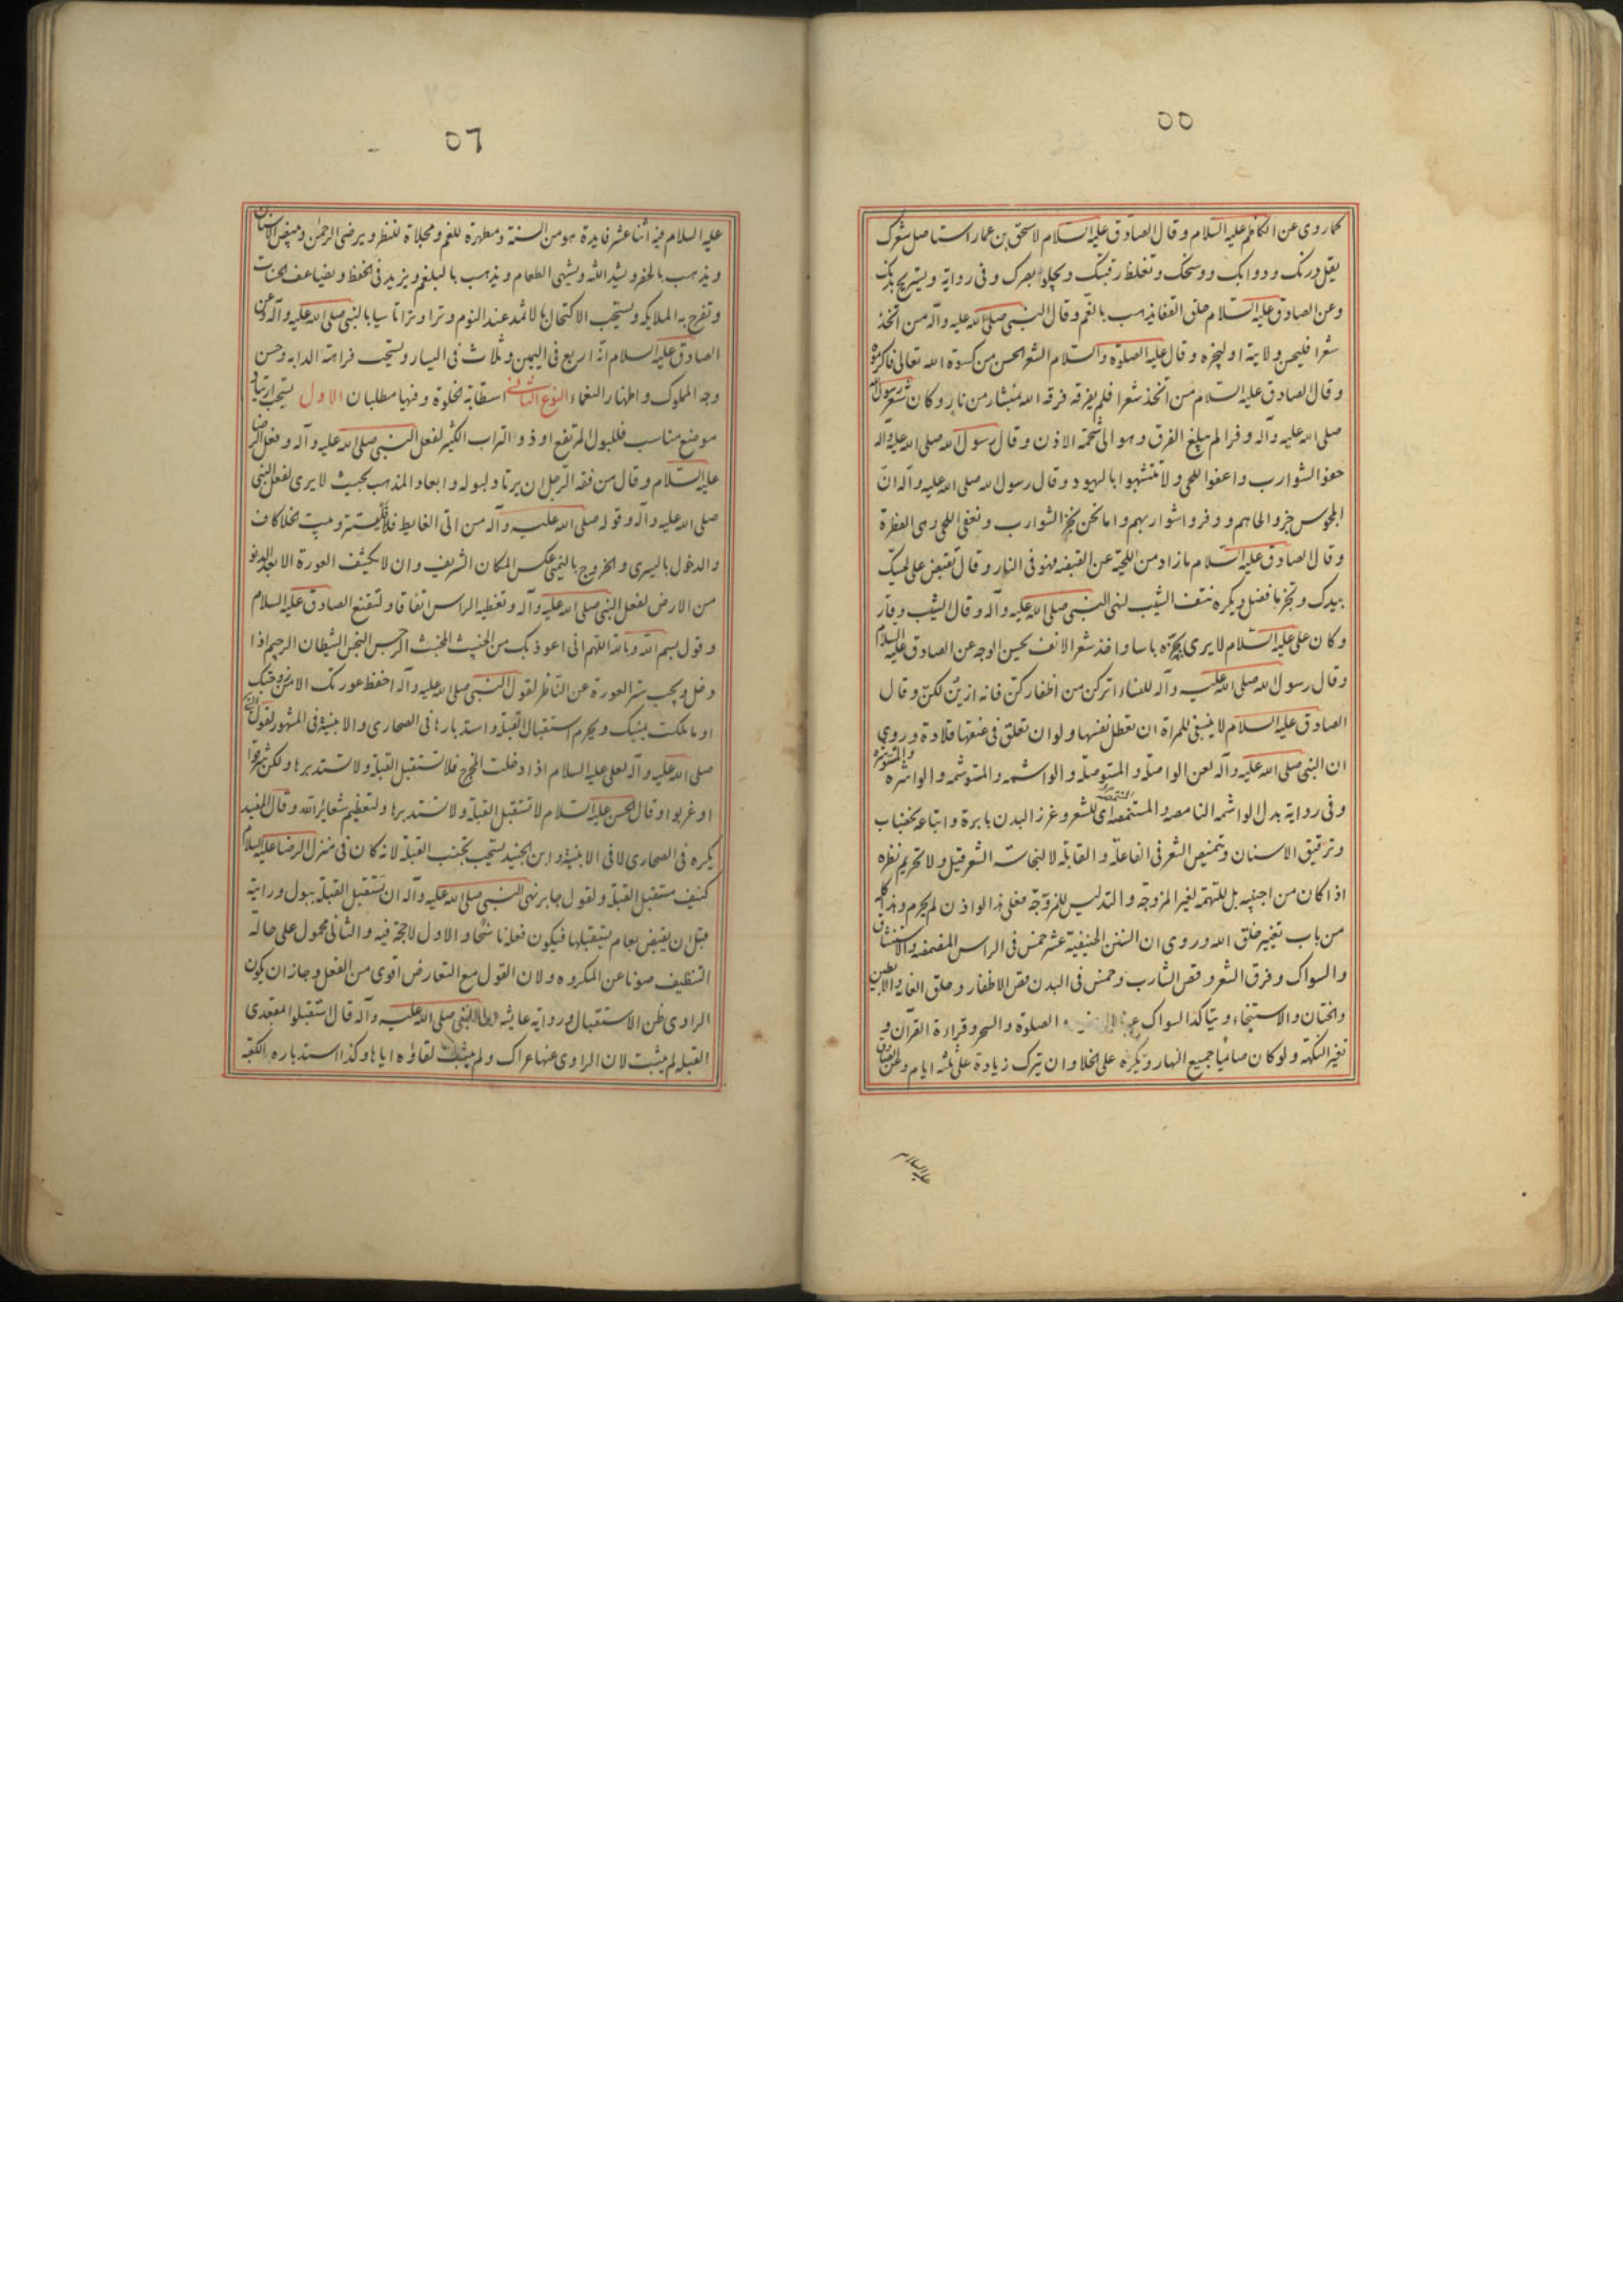 ٥٥
كما روى عن الكاظم عليه السلام وقال الصادق عليه السلام لاسحق بن عمار استاصل شعرك
يقل درنك ودوابك ووسخك وتغلظ رقبتك ويجلوا بصرك وفى رواية ويستريح بدنك
وعن الصادق عليه السلام حلق القفا يذهب بالغم وقال النبى صلى الله عليه وآله من اتخذ
شعرا فليحسن ولايته او ليجزه وقال عليه الصلوة والسلام الشعر الحسن من كسوة الله تعالى فاكرموه
وقال الصادق عليه السلام من اتخذ شعرا فلم يفرقه فرقه الله بمنشار من نار وكان شعر رسول الله
صلى الله عليه وآله وفرا لم يبلغ الفرق وهو الى شحمة الاذن وقال رسول الله صلى الله عليه وآله
حفوا الشوارب واعفوا اللحى ولا تتشبهوا باليهود وقال رسول الله صلى الله عليه وآله ان
المجوس جزوا لحاهم ووفروا شواربهم واما نحن نجز الشوارب ونعفى اللحى وهى الفطرة
وقال الصادق عليه السلام ما زاد من اللحية عن القبضه فهو فى النار وقال تقبض على لحيتك
بيدك وتجز ما فضل ويكره نتف الشيب لنهى النبى صلى الله عليه وآله وقال الشيب وقار
وكان على عليه السلام لا يرى بجزه باسا واخذ شعر الانف يحسن الوجه عن الصادق عليه السلام
وقال رسول الله صلى الله عليه وآله للنساء اتركن من اظفاركن فانه ازين لكن وقال
الصادق عليه السلام لا ينبغى للمراة ان تعطل نفسها ولو ان تعلق فى عنقها قلادة وروى
ان النبى صلى الله عليه وآله لعن الواصلة والمستوصلة والواشمه والمتوشمه والواشره والمستوشره
وفى رواية بدل الواشمه النامصه والمستنمصه اى للشعر وغرز البدن بابرة واتباعه بخضاب
وترقيق الاسنان وتنميص الشعر فى الفاعلة والقابلة لا لنجاسة الشعر قيل ولا تحريم نظره
اذا كان من اجنبيه بل للتهمة لغير المزوجة والتدليس للمزوجة فعلى هذا لو اذن لم يحرم وهذا كله
من باب تغيير خلق الله وروى ان السنن الحنيفية عشر خمس فى الراس المضمضه والاستنشاق
والسواك وفرق الشعر وقص الشارب وخمس فى البدن قص الاظفار وحلق العانه والابطين
والختان والاستنجاء ويتاكد السواك عند الصلوة والسحر وقراءة القرآن و
تغير النكهة ولو كان صائما جميع النهار ويكره على الخلا وان يترك زيادة على ثلثه ايام وعن الصادق
عليه السلام
٥٦
عليه السلام فيه اثنا عشر فايدة هو من السنة ومطهرة للفم ومجلاة للنظر ويرضى الرحمن ويبيض الاسنان
ويذهب بالحفر ويشد اللثه ويشهى الطعام ويذهب بالبلغم ويزيد فى الحفظ ويضاعف الحسنات
وتفرح به الملايكه ويستحب الاكتحال بالاثمد عند النوم وترا وترا تاسيا بالنبى صلى الله عليه وآله وعن
الصادق عليه السلام انه اربع فى اليمين وثلاث فى اليسار ويستحب فراهة الدابه وحسن
وجه المملوك واظهار النعماء النوع الثانى استطابة الخلوة وفيها مطلبان الاول يستحب ارتياد
موضع مناسب فللبول المرتفع او ذو التراب الكثير لفعل النبى صلى الله عليه وآله وفعل الرضا
عليه السلام وقال من فقه الرجل ان يرتاد لبوله وابعاد المذهب بحيث لا يرى لفعل النبى
صلى الله عليه وآله وقوله صلى الله عليه وآله من اتى الغايط فليستتر وبيت الخلا كاف
والدخول باليسرى والخروج باليمنى عكس المكان الشريف وان لا يكشف العورة الا بعد الدنو
من الارض لفعل النبى صلى الله عليه وآله وتغطيه الراس اتفاقا ولتقنع الصادق عليه السلام
وقول بسم الله وبالله اللهم انى اعوذ بك من الخبيث المخبث الرجس النجس الشيطان الرجيم اذا
دخل ويجب ستر العورة عن الناظر لقول النبى صلى الله عليه وآله احفظ عورتك الا من زوجتك
او ما ملكت يمينك ويحرم استقبال القبلة واستدبارها فى الصحارى والابنية فى المشهور لقول النبى
صلى الله عليه وآله لعلى عليه السلام اذا دخلت المخرج فلا تستقبل القبلة ولا تستدبرها ولكن شرقوا
او غربوا وقال الحسن عليه السلام لا تستقبل القبلة ولا تستدبرها ولتعظيم شعائر الله وقال المفيد
يكره فى الصحارى لا فى الابنية وابن الجنيد يستحب تجنب القبلة لانه كان فى منزل الرضا عليه السلام
كنيف مستقبل القبلة ولقول جابر نهى النبى صلى الله عليه وآله ان تستقبل القبلة ببول ورايته
قبل ان يقبض بعام يستقبلها فيكون فعله ناسخا والاول لا حجة فيه والثانى محمول على حالة
التنظيف صونا عن المكروه ولان القول مع التعارض اقوى من الفعل وجاز ان يكون
الراوى ظن الاستقبال ورواية عايشه ان النبى صلى الله عليه وآله قال استقبلوا بمقعدى
القبلة لم يثبت لان الراوى عنها عراك ولم يثبت لقاؤه اياها وكذا استدباره الكعبة